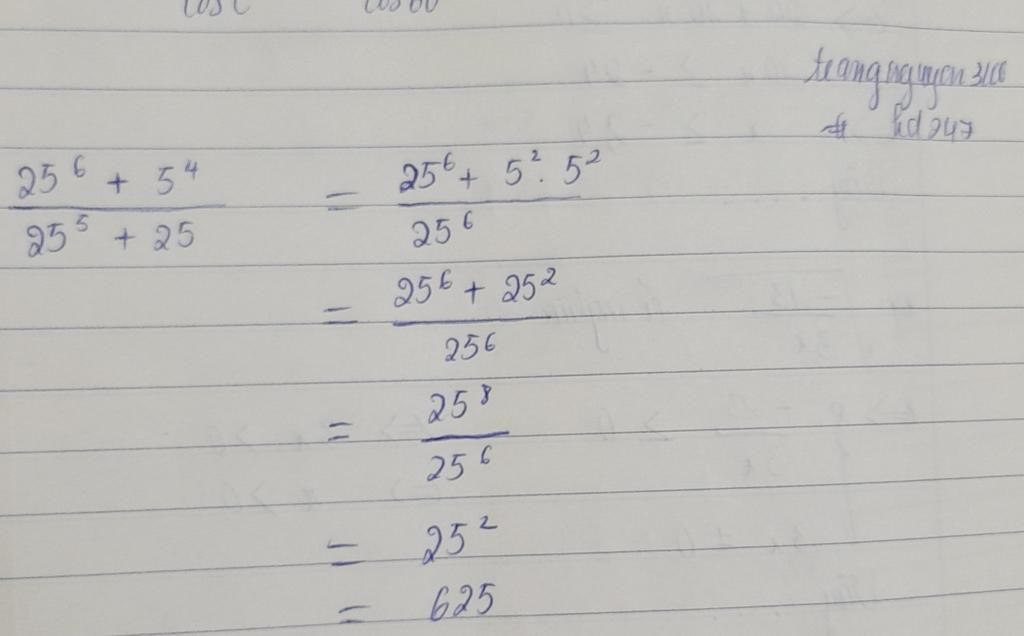 trangnguyen3108
# hd247
25⁶ + 5⁴ / 25⁵ + 25 = 25⁶ + 5² . 5² / 25⁶
= 25⁶ + 25² / 25⁶
= 25⁸ / 25⁶
= 25²
= 625